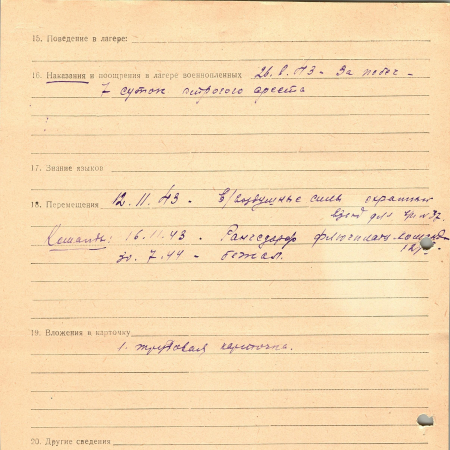 15. Поведение в лагере:
16. Наказания и поощрения в лагере военнопленных 26.V.43 - За побег -
7 суток строгого ареста
17. Знание языков
18. Перемещения 12.11.43 - в/воздушные силы охранный
взвод для
Команды: 16.11.43 -
30.7.44 - бежал.
19. Вложения в карточку
1. трудовая карточка.
20. Другие сведения